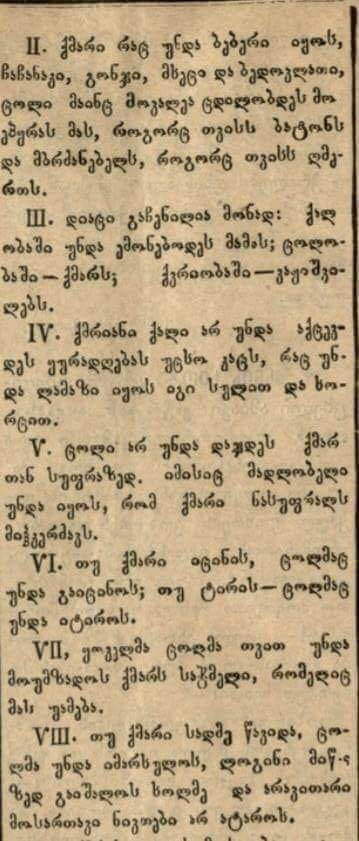 II. ქმარი რაც უნდა ბებერი იყოს,
ჩაჩანაკი, გონჯი, მხეცი და ბედოვლათი,
ცოლი მაინც მოვალეა ცდილობდეს მო
ეპყრას მას, როგორც თვისს ბატონს
და მბრძანებელს, როგორც თვისს ღმე-
რთს.
III. დიაცი გაჩენილია მონად: ქალ
ობაში უნდა ემონებოდეს მამას; ცოლო-
ბაში — ქმარს; ქვრიობაში — ვაჟიშვი-
ლებს.
IV. ქმრიანი ქალი არ უნდა აქცევ-
დეს ყურადღებას უცხო კაცს, რაც უნ-
და ლამაზი იყოს იგი სულით და ხო-
რცით.
V. ცოლი არ უნდა დაჯდეს ქმარ
თან სუფრაზედ. იმისიც მადლობელი
უნდა იყოს, რომ ქმარი ნასუფრალს
მიჰკერძავს.
VI. თუ ქმარი იცინის, ცოლმაც
უნდა გაიცინოს; თუ ტირის — ცოლმაც
უნდა იტიროს.
VII, ყოველმა ცოლმა თვით უნდა
მოუმზადოს ქმარს საჭმელი, რომელიც
მას უამება.
VIII. თუ ქმარი სადმე წავიდა, ცო-
ლმა უნდა იმარხულოს, ლოგინი მიწა
ზედ გაიშალოს ხოლმე და არავითარი
მოსართავი ნივთები არ ატაროს.